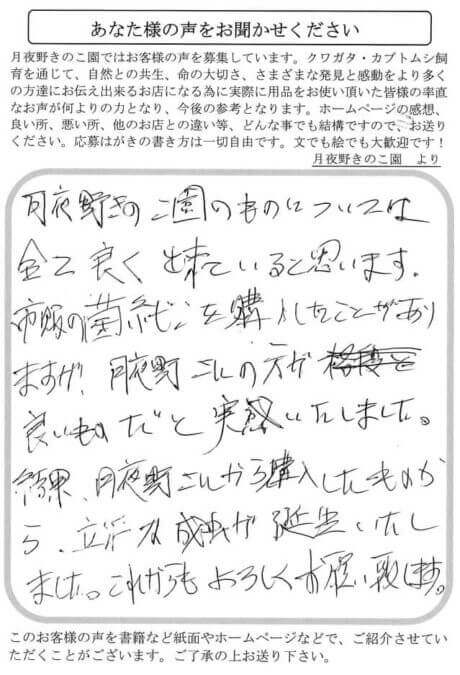 あなた様の声をお聞かせください
月夜野きのこ園ではお客様の声を募集しています。クワガタ・カブトムシ飼
育を通じて、自然との共生、命の大切さ、さまざまな発見と感動をより多く
の方達にお伝え出来るお店になる為に実際に用品をお使い頂いた皆様の率直
なお声が何よりの力となり、今後の参考となります。ホームページの感想、
良い所、悪い所、他のお店との違い等、どんな事でも結構ですので、お送り
ください。応募はがきの書き方は一切自由です。文でも絵でも大歓迎です！
月夜野きのこ園　より
月夜野きのこ園のものについては
全て良く出来ていると思います。
市販の菌糸ビンを購入したことがあり
ますが、月夜野さんの方が格段と
良いものだと実感いたしました。
結果、月夜野さんから購入したものか
ら、立派な成虫が誕生いたし
ました。これからもよろしくお願い致します。
このお客様の声を書籍など紙面やホームページなどで、ご紹介させてい
ただくことがございます。ご了承の上お送り下さい。